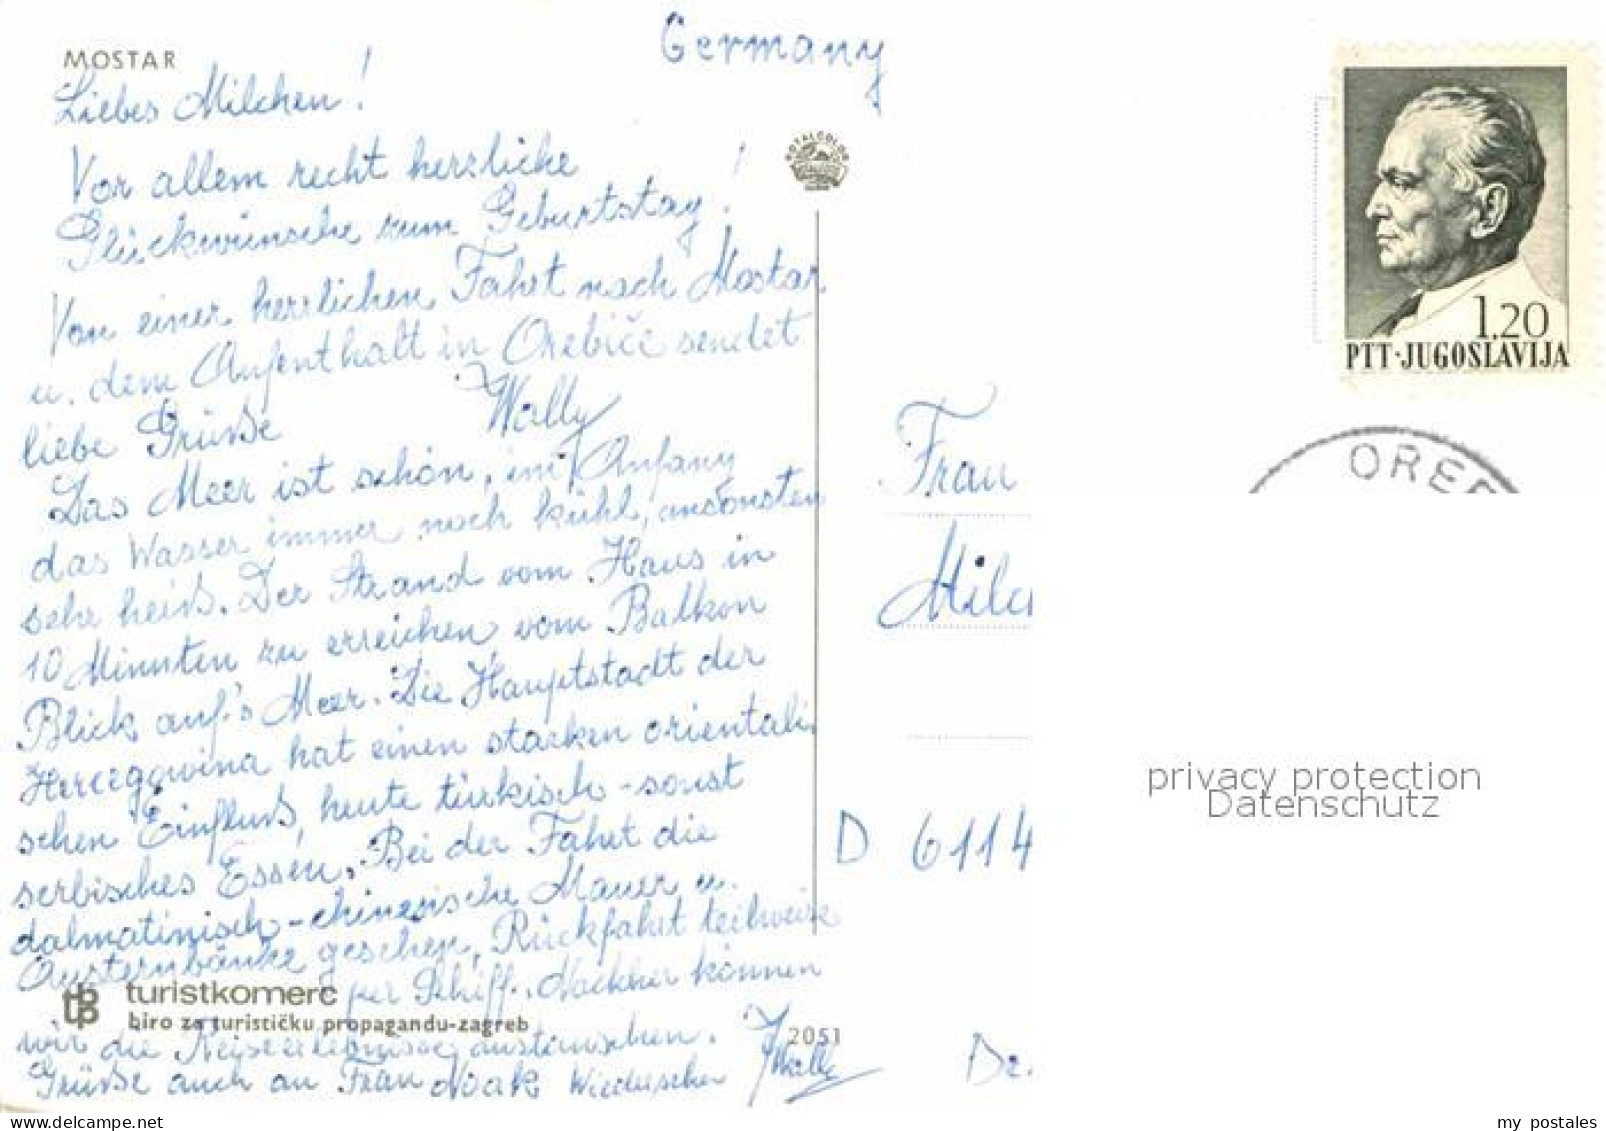 MOSTAR
Germany
Liebes Milchen!
Vor allem recht herzliche
Glückwünsche zum Geburtstag!
Von einer herrlichen Fahrt nach Mostar
u. dem Aufenthalt in Orebiče sendet
liebe Grüße Wally
Das Meer ist schön, im Anfang
das Wasser immer noch kühl, ansonsten
sehr heiß. Der Strand vom Haus in
10 Minuten zu erreichen vom Balkon
Blick auf's Meer. Die Hauptstadt der
Hercegowina hat einen starken orientali
schen Einfluß, heute türkisch - sonst
serbisches Essen. Bei der Fahrt die
dalmatinisch-chinesische Mauer u.
Austernbänke gesehen, Rückfahrt teilweise
per Schiff. Nachher können
wir die Reiseerlebnisse austauschen.
Grüße auch an Frau Noak Wiedersehen Wally
turistkomerc
biro za turističku propagandu-zagreb
2051
TOTALCOLOR
1.20
PTT·JUGOSLAVIJA
OREB
Frau
Milch
D 6114
Dr.
privacy protection
Datenschutz
www.delcampe.net
my_postales